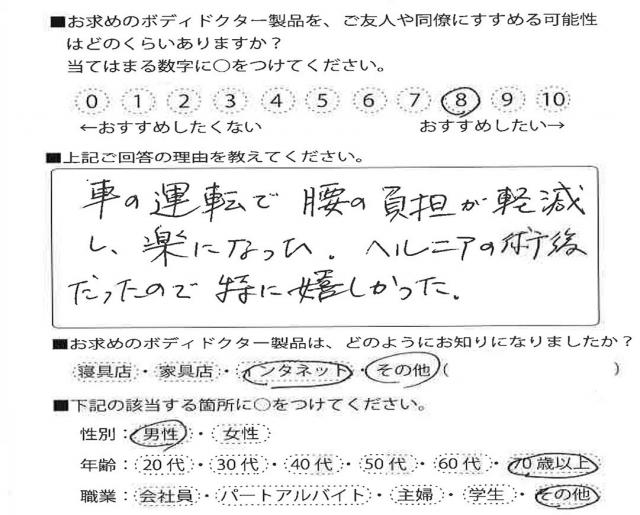 ■お求めのボディドクター製品を、ご友人や同僚にすすめる可能性
はどのくらいありますか？
当てはまる数字に○をつけてください。
0 1 2 3 4 5 6 7 8 9 10
←おすすめしたくない おすすめしたい→
■上記ご回答の理由を教えてください。
車の運転で 腰の負担が軽減
し、楽になった。ヘルニアの術後
だったので 特に嬉しかった。
■お求めのボディドクター製品は、どのようにお知りになりましたか？
寝具店・家具店・インタネット・その他( )
■下記の該当する箇所に○をつけてください。
性別：男性・女性
年齢：20代・30代・40代・50代・60代・70歳以上
職業：会社員・パートアルバイト・主婦・学生・その他